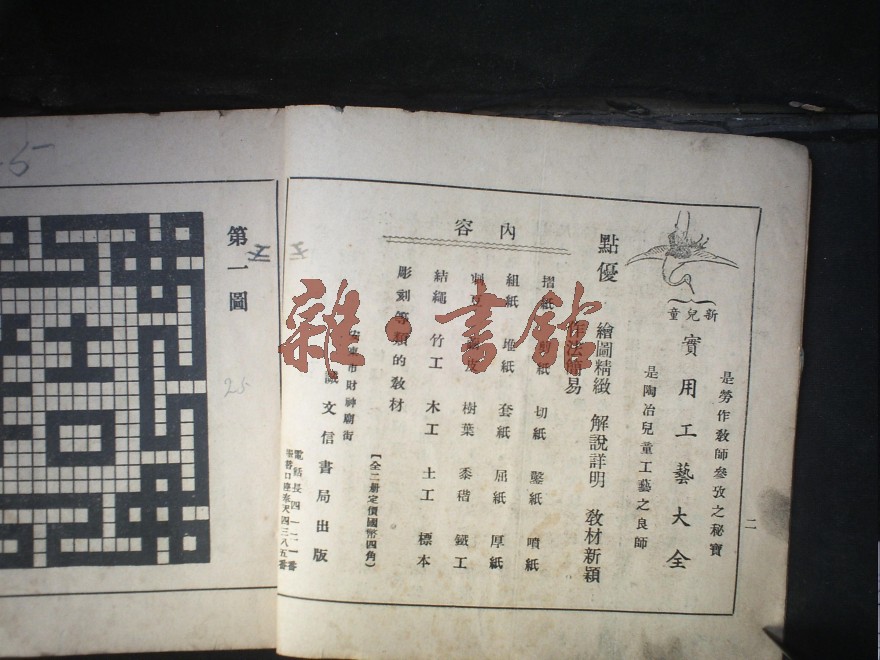 二
是勞作教師參攷之秘寶
新兒童
實用工藝大全
是陶冶兒童工藝之良師
點優
繪圖精緻 解說詳明 教材新穎
作法簡易
內容
摺紙 紙 切紙 鑿紙 噴紙
組紙 堆紙 套紙 屈紙 厚紙
刺豆 皮 樹葉 黍稭 鐵工
結繩 竹工 木工 土工 標本
彫刻等類的教材
【全二册定價國幣四角】
安東市財神廟街
誠文信書局出版
電話長四一二一番
振替口座奉天四三八五番
第一圖
25
5
雜·書館